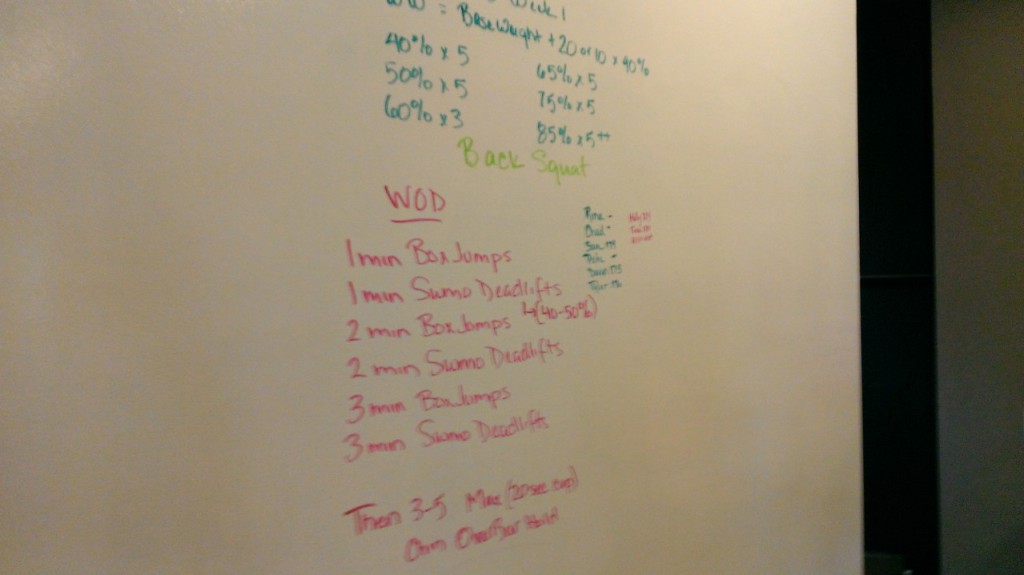 Week 1
= Base Weight + 20 or 10 x 40%
40% x 5
50% x 5
60% x 3
65% x 5
75% x 5
85% x 5++
Back Squat
WOD
1 min Box Jumps
1 min Sumo Deadlifts
↳(40-50%)
2 min Box Jumps
2 min Sumo Deadlifts
3 min Box Jumps
3 min Sumo Deadlifts
Then 3-5 Max (20 sec cap)
Chin Over Bar Hold